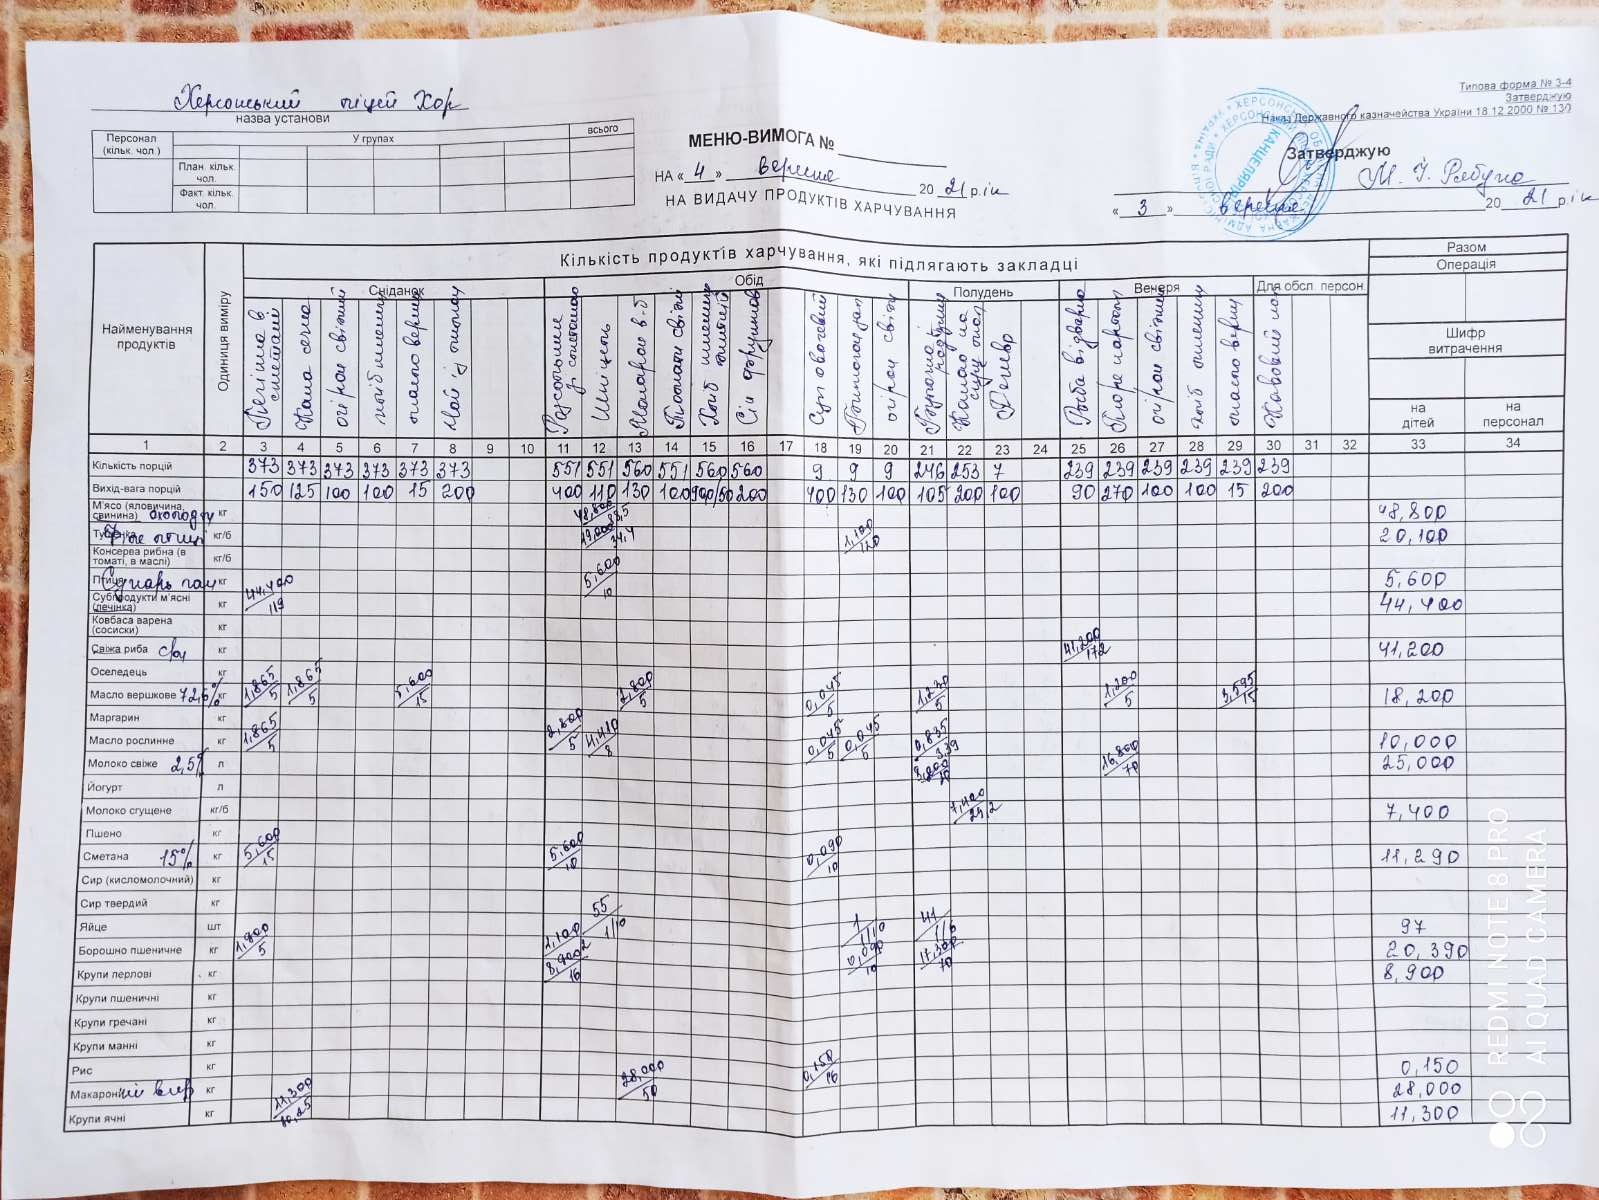 Херсонський ліцей Хор
назва установи
Типова форма № З-4
Затверджую
Наказ Державного казначейства України 18.12.2000 № 130
Персонал (кільк. чол.) У групах всього
План. кільк. чол.
Факт. кільк. чол.
МЕНЮ-ВИМОГА №
НА « 4 » вересня 2021 р.ік
НА ВИДАЧУ ПРОДУКТІВ ХАРЧУВАННЯ
Затверджую
« 3 » вересня 2021 р.ік
КАНЦЕЛЯРІЯ
Найменування продуктів
Одиниця виміру
Кількість продуктів харчування, які підлягають закладці
Разом
Операція
Шифр витрачення
на дітей на персонал
Сніданок Обід Полудень Вечеря Для обсл. персон.
Печінка в сметані
Каша ячна
огірки свіжі
хліб пшеничн
масло верш
Чай із лимоном
Розсольник з сметаною
Шніцель
Макарон в-б
Помідори свіжі
Сік фруктов
Суп овочевий
огірки свіжі
Риба відварна
Пюре картоп
огірки свіжі
хліб пшеничн
масло верш
1 2 3 4 5 6 7 8 9 10 11 12 13 14 15 16 17 18 19 20 21 22 23 24 25 26 27 28 29 30 31 32 33 34
Кількість порцій 373 373 373 373 373 373 551 551 560 551 560 560 9 9 9 246 253 7 239 239 239 239 239 239
Вихід-вага порцій 150 125 100 100 15 200 400 110 130 100 900/50 200 400 130 100 105 200 100 90 270 100 100 15 200
М'ясо (яловичина, свинина) охолодж кг 48,800 48,800
Філе птиці кг/б 19,000 34,4 1,100 120 20,100
Консерва рибна (в томаті, в маслі) кг/б
Птиця Сухарь пан кг 5,600 10 5,600
Субпродукти м'ясні (печінка) кг 44,400 119 44,400
Ковбаса варена (сосиски) кг
Свіжа риба с/м кг 41,200 172 41,200
Оселедець кг
Масло вершкове 72,6% кг 1,865 5 1,865 5 5,600 15 2,800 5 0,045 5 1,230 5 1,200 5 3,595 15 18,200
Маргарин кг
Масло рослинне кг 1,865 5 2,800 5 4,410 8 0,045 5 0,045 5 0,835 3,39 10,000
Молоко свіже 2,5% л 16,800 70 25,000
Йогурт л
Молоко сгущене кг/б 7,400 29,2 7,400
Пшено кг
Сметана 15% кг 5,600 15 5,600 10 0,090 10 11,290
Сир (кисломолочний) кг
Сир твердий кг
Яйце шт 55 1/10 1 1/10 41 1/6 97
Борошно пшеничне кг 1,800 5 1,100 2 0,090 10 17,300 70 20,390
Крупи перлові кг 8,900 16 8,900
Крупи пшеничні кг
Крупи гречані кг
Крупи манні кг
Рис кг 0,150 16 0,150
Макаронні вир кг 28,000 50 28,000
Крупи ячні кг 11,300 30,25 11,300
REDMI NOTE 8 PRO
AI QUAD CAMERA